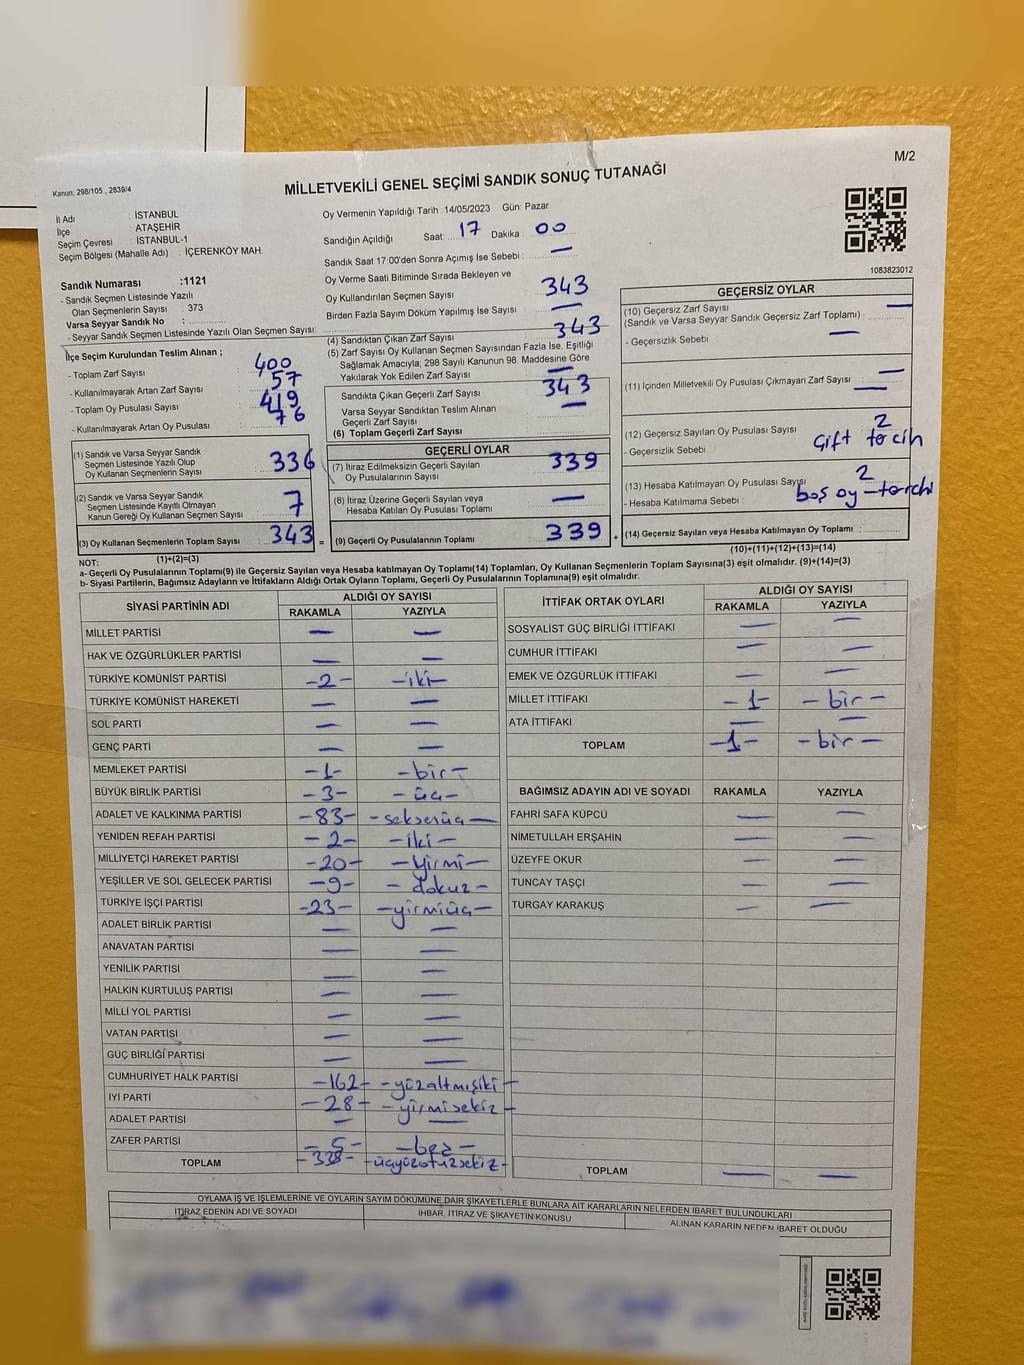 M/2
Kanun: 298/105 , 2839/4
MİLLETVEKİLİ GENEL SEÇİMİ SANDIK SONUÇ TUTANAĞI
İl Adı : İSTANBUL
İlçe : ATAŞEHİR
Seçim Çevresi : İSTANBUL-1
Seçim Bölgesi (Mahalle Adı) : İÇERENKÖY MAH.
Sandık Numarası :1121
- Sandık Seçmen Listesinde Yazılı
Olan Seçmenlerin Sayısı : 373
Varsa Seyyar Sandık No :
- Seyyar Sandık Seçmen Listesinde Yazılı Olan Seçmen Sayısı :
İlçe Seçim Kurulundan Teslim Alınan ;
- Toplam Zarf Sayısı : 400
- Kullanılmayarak Artan Zarf Sayısı : 57
- Toplam Oy Pusulası Sayısı : 419
- Kullanılmayarak Artan Oy Pusulası : 76
(1) Sandık ve Varsa Seyyar Sandık
Seçmen Listesinde Yazılı Olup
Oy Kullanan Seçmenlerin Sayısı : 336
(2) Sandık ve Varsa Seyyar Sandık
Seçmen Listesinde Kayıtlı Olmayan
Kanun Gereği Oy Kullanan Seçmen Sayısı : 7
(3) Oy Kullanan Seçmenlerin Toplam Sayısı : 343 =
(1)+(2)=(3)
Oy Vermenin Yapıldığı Tarih :14/05/2023 Gün: Pazar
Sandığın Açıldığı Saat: 17 Dakika 00
Sandık Saat 17:00'den Sonra Açımış İse Sebebi : —
Oy Verme Saati Bitiminde Sırada Bekleyen ve
Oy Kullandırılan Seçmen Sayısı 343
Birden Fazla Sayım Döküm Yapılmış İse Sayısı : —
(4) Sandıktan Çıkan Zarf Sayısı 343
(5) Zarf Sayısı Oy Kullanan Seçmen Sayısından Fazla İse, Eşitliği
Sağlamak Amacıyla; 298 Sayılı Kanunun 98. Maddesine Göre
Yakılarak Yok Edilen Zarf Sayısı —
Sandıkta Çıkan Geçerli Zarf Sayısı 343
Varsa Seyyar Sandıktan Teslim Alınan
Geçerli Zarf Sayısı —
(6) Toplam Geçerli Zarf Sayısı
GEÇERLİ OYLAR
(7) İtiraz Edilmeksizin Geçerli Sayılan
Oy Pusulalarının Sayısı : 339
(8) İtiraz Üzerine Geçerli Sayılan veya
Hesaba Katılan Oy Pusulası Toplamı : —
(9) Geçerli Oy Pusulalarının Toplamı : 339 +
1083823012
GEÇERSİZ OYLAR
(10) Geçersiz Zarf Sayısı —
(Sandık ve Varsa Seyyar Sandık Geçersiz Zarf Toplamı) :
- Geçersizlik Sebebi : —
(11) İçinden Milletvekili Oy Pusulası Çıkmayan Zarf Sayısı —
(12) Geçersiz Sayılan Oy Pusulası Sayısı 2
- Geçersizlik Sebebi Çift tercih
(13) Hesaba Katılmayan Oy Pusulası Sayısı 2
- Hesaba Katılmama Sebebi : boş oy-
(14) Geçersiz Sayılan veya Hesaba Katılmayan Oy Toplamı :
(10)+(11)+(12)+(13)=(14)
NOT:
a- Geçerli Oy Pusulalarının Toplamı(9) ile Geçersiz Sayılan veya Hesaba katılmayan Oy Toplamı(14) Toplamları, Oy Kullanan Seçmenlerin Toplam Sayısına(3) eşit olmalıdır. (9)+(14)=(3)
b- Siyasi Partilerin, Bağımsız Adayların ve İttifakların Aldığı Ortak Oyların Toplamı, Geçerli Oy Pusulalarının Toplamına(9) eşit olmalıdır.
SİYASİ PARTİNİN ADI ALDIĞI OY SAYISI
RAKAMLA YAZIYLA
MİLLET PARTİSİ — —
HAK VE ÖZGÜRLÜKLER PARTİSİ — —
TÜRKİYE KOMÜNİST PARTİSİ -2- -iki-
TÜRKİYE KOMÜNİST HAREKETİ — —
SOL PARTİ — —
GENÇ PARTİ — —
MEMLEKET PARTİSİ -1- -bir-
BÜYÜK BİRLİK PARTİSİ -3- -üç-
ADALET VE KALKINMA PARTİSİ -83- -seksenüç-
YENİDEN REFAH PARTİSİ -2- -iki-
MİLLİYETÇİ HAREKET PARTİSİ -20- -yirmi-
YEŞİLLER VE SOL GELECEK PARTİSİ -9- -dokuz-
TÜRKİYE İŞÇİ PARTİSİ -23- -yirmiüç-
ADALET BİRLİK PARTİSİ — —
ANAVATAN PARTİSİ — —
YENİLİK PARTİSİ — —
HALKIN KURTULUŞ PARTİSİ — —
MİLLİ YOL PARTİSİ — —
VATAN PARTİSİ — —
GÜÇ BİRLİĞİ PARTİSİ — —
CUMHURİYET HALK PARTİSİ -162- -yüzaltmışiki-
İYİ PARTİ -28- -yirmisekiz-
ADALET PARTİSİ — —
ZAFER PARTİSİ -5- -beş-
TOPLAM -338- -üçyüzotuzsekiz-
İTTİFAK ORTAK OYLARI ALDIĞI OY SAYISI
RAKAMLA YAZIYLA
SOSYALIST GÜÇ BİRLİĞİ İTTİFAKI — —
CUMHUR İTTİFAKI — —
EMEK VE ÖZGÜRLÜK İTTİFAKI — —
MİLLET İTTİFAKI -1- -bir-
ATA İTTİFAKI — —
TOPLAM -1- -bir-
BAĞIMSIZ ADAYIN ADI VE SOYADI RAKAMLA YAZIYLA
FAHRİ SAFA KÜPCÜ — —
NİMETULLAH ERŞAHİN — —
ÜZEYFE OKUR — —
TUNCAY TAŞÇI — —
TURGAY KARAKUŞ — —
TOPLAM — —
OYLAMA İŞ VE İŞLEMLERİNE VE OYLARIN SAYIM DÖKÜMÜNE DAİR ŞİKAYETLERLE BUNLARA AİT KARARLARIN NELERDEN İBARET BULUNDUKLARI
İTİRAZ EDENİN ADI VE SOYADI İHBAR, İTİRAZ VE ŞİKAYETİN KONUSU ALINAN KARARIN NEDEN İBARET OLDUĞU